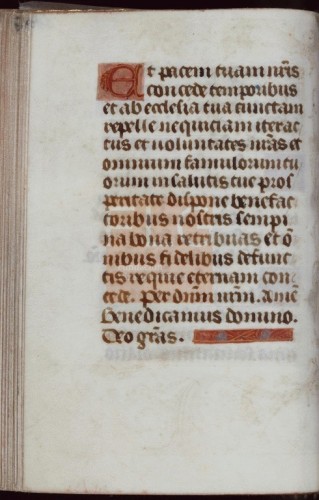 Et pacem tuam nr̄is
concede temporibus
et ab ecclesia tua cunctam
repelle nequiciam iterac
tus et voluntates nr̄as et
omnium famulorum tu
orum in salutis tue pros
peritate dispone benefac
toribus nostris sempi
na bona retribuas et ō
nibus fidelibus defunc
tis requie eternam con
cede. Per dn̄m nr̄m. Amē
Benedicamus domino.
Deo gr̄as.